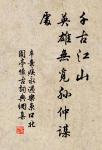 千古江山
英雄無覓孫仲謀
處
辛棄疾永遇樂京口北
固亭懷古詞典網集